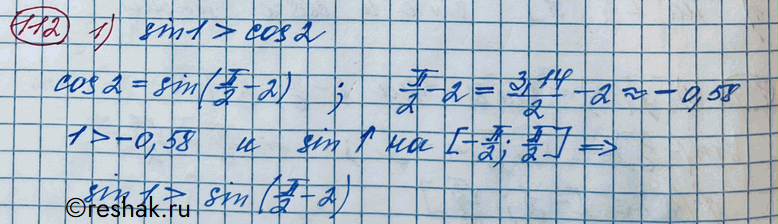 112 1) sin1 > cos2
cos2 = sin(π/2 - 2) ; π/2 - 2 = 3,14/2 - 2 ≈ -0,58
1 > -0,58 и sin ↑ на [-π/2; π/2] ⇒
sin1 > sin(π/2 - 2)
©reshak.ru